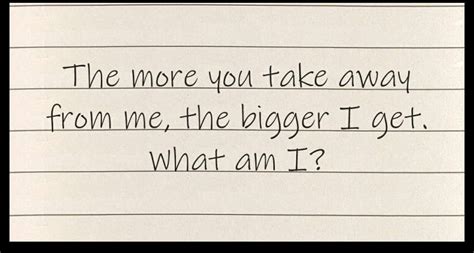 The more you take away
from me, the bigger I get.
What am I?